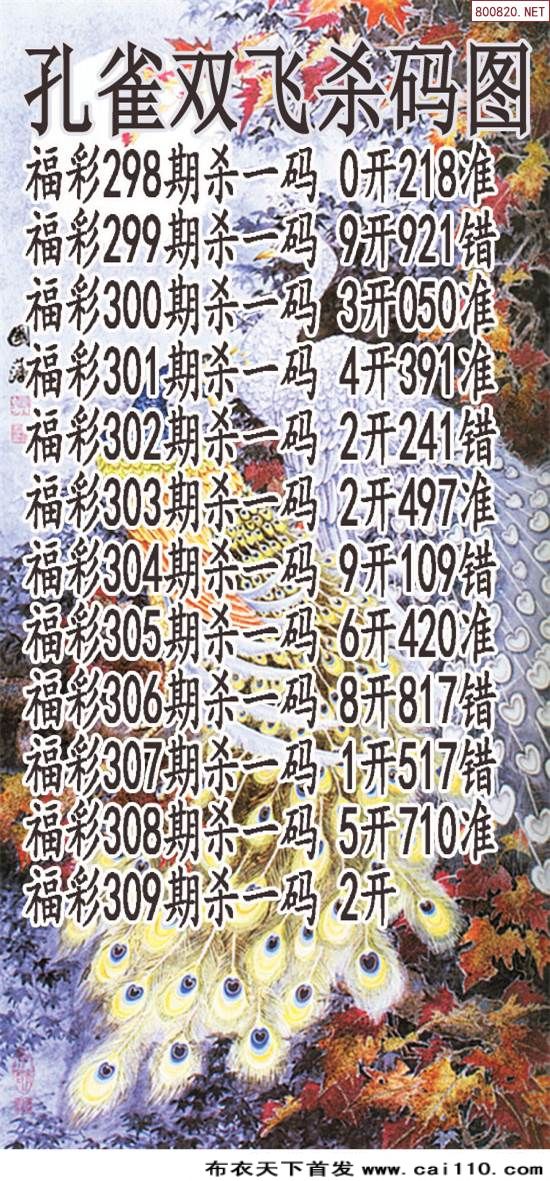 800820.NET
孔雀双飞杀码图
福彩298期杀一码 0开218准
福彩299期杀一码 9开921错
福彩300期杀一码 3开050准
福彩301期杀一码 4开391准
福彩302期杀一码 2开241错
福彩303期杀一码 2开497准
福彩304期杀一码 9开109错
福彩305期杀一码 6开420准
福彩306期杀一码 8开817错
福彩307期杀一码 1开517错
福彩308期杀一码 5开710准
福彩309期杀一码 2开
布衣天下首发 www.cai110.com